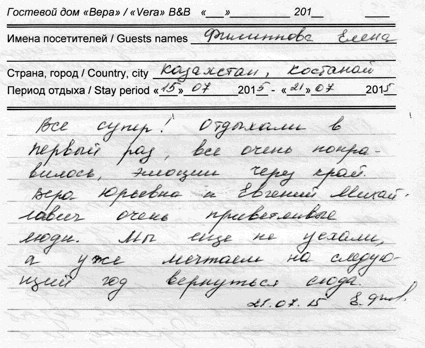 Гостевой дом «Вера» / «Vera» B&B «___»__________ 201__
Имена посетителей / Guests names Филиппова Елена
Страна, город / Country, city Казахстан, Костанай
Период отдыха / Stay period «15» 07 2015 - «21» 07 2015
Все супер! Отдыхали в
первый раз, все очень понра-
вилось, эмоции через край.
Вера Юрьевна и Евгений Михай-
лович очень приветливые
люди. Мы еще не уехали,
а уже мечтаем на следую-
щий год вернуться сюда.
21.07.15